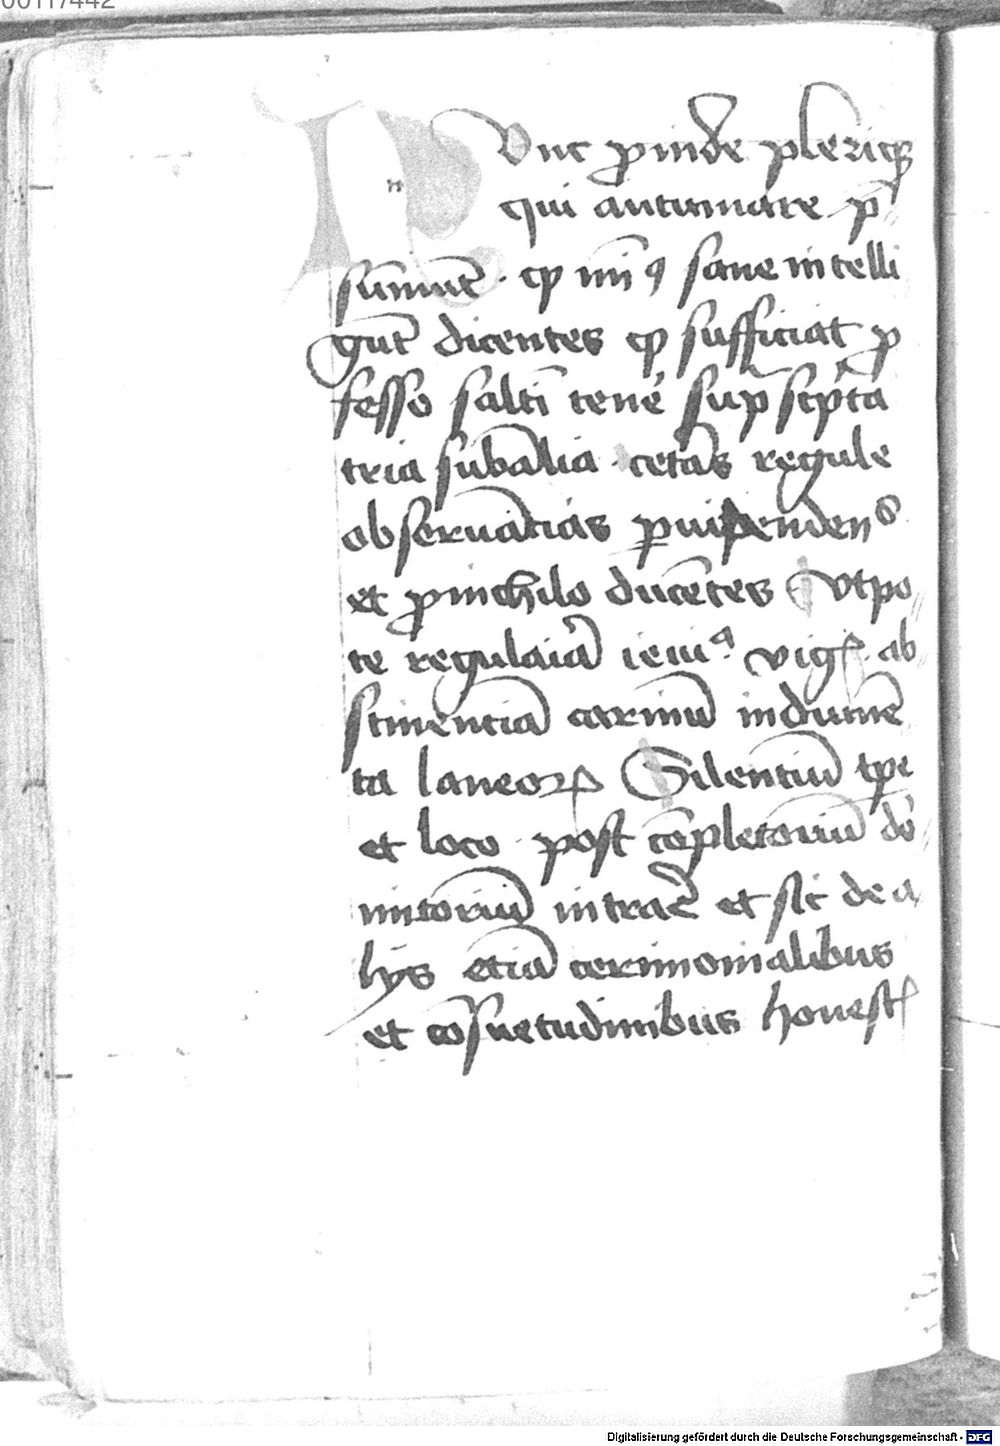 00117442
n
Vnc ꝓinde pleriqꝫ
qui autumare p̄
sūmūt · ꝙ nīꝯ sane intelli
gūt dicentes ꝙ sufficiat ꝓ
fesso saltī tene᷑ sup scpͥta
tria subālia · cetās regule
obseruācias ꝑuipenden
et ꝓ inchilo ducētes vtpo
te regulaiā ieiu vig ab
stinenciā carniū indumē
ta laneoꝝ Silentiū tpe
et loco post cōpletoriū do
mitoriū intrare et sic de a
lijs etiā cerimonialibus
et cōsuetudinibus honest
Digitalisierung gefördert durch die Deutsche Forschungsgemeinschaft - DFG